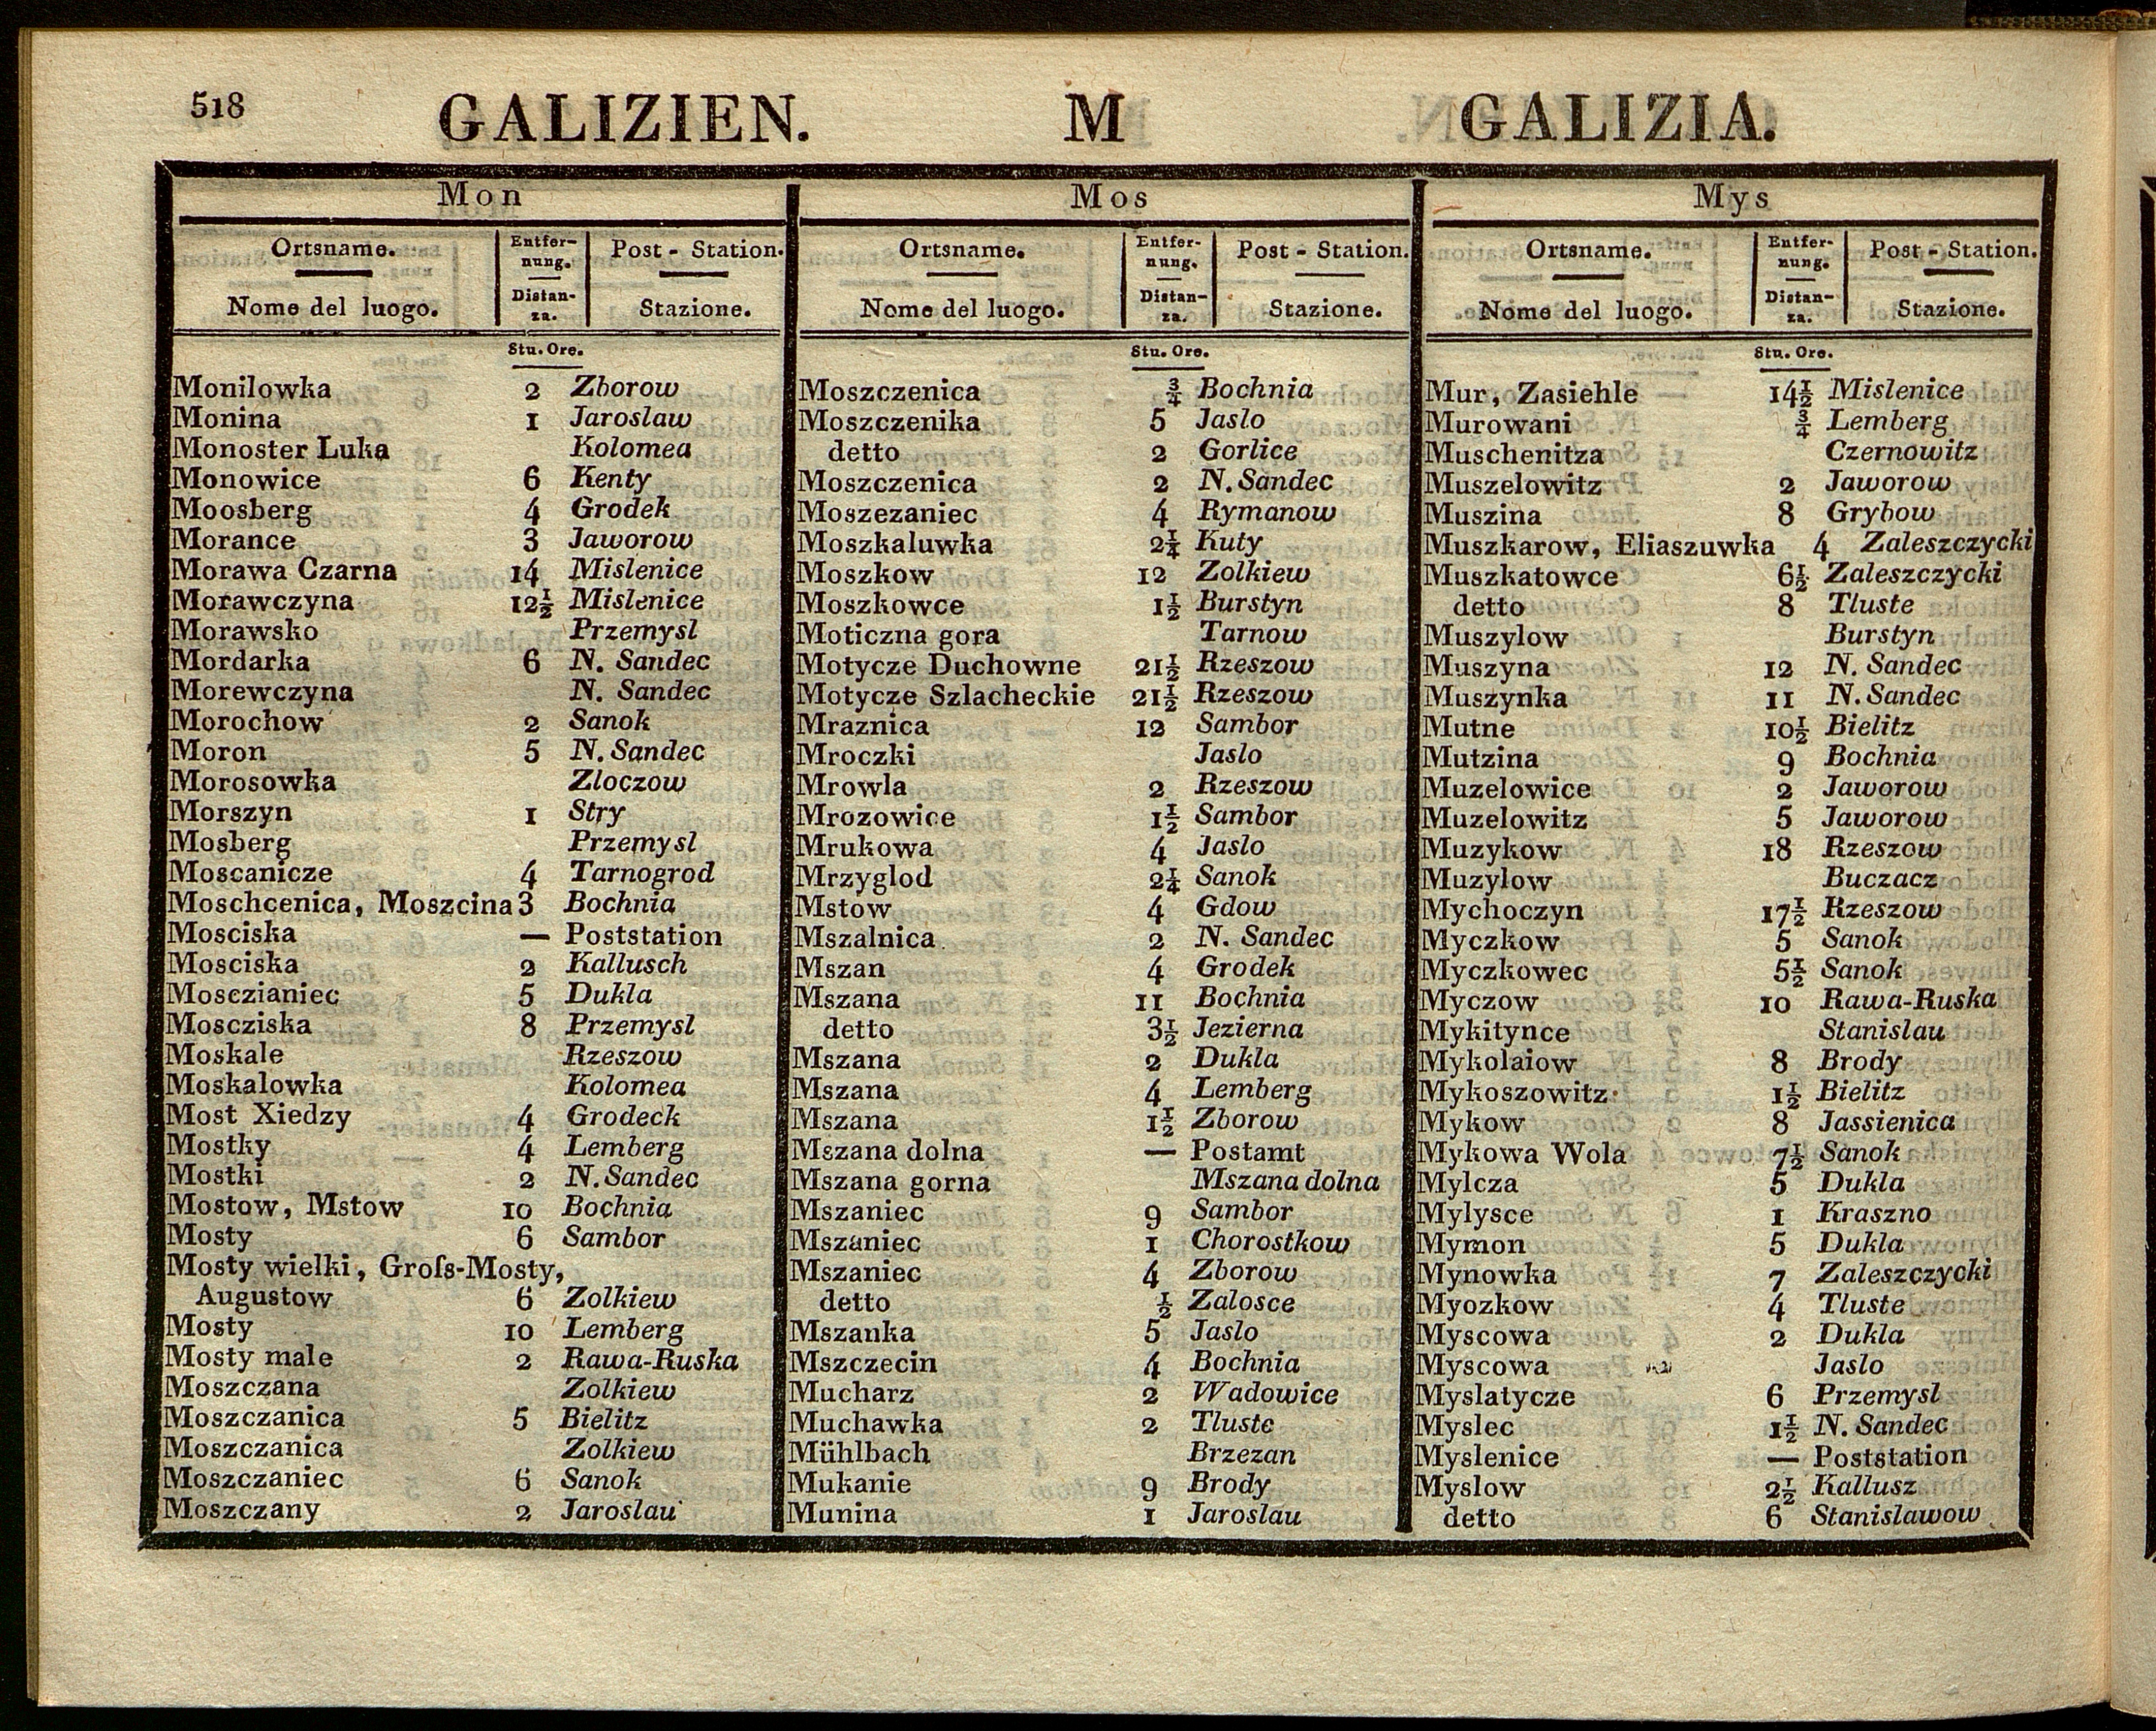 518 GALIZIEN. M GALIZIA.
Mon
Ortsname. Entfer- Post - Station.
nung.
Nome del luogo. Distan- Stazione.
za.
Stu. Ore.
Monilowka 2 Zborow
Monina 1 Jaroslaw
Monoster Luka Kolomea
Monowice 6 Kenty
Moosberg 4 Grodek
Morance 3 Jaworow
Morawa Czarna 14 Mislenice
Morawczyna 12½ Mislenice
Morawsko Przemysl
Mordarka 6 N. Sandec
Morewczyna N. Sandec
Morochow 2 Sanok
Moron 5 N. Sandec
Morosowka Zloczow
Morszyn 1 Stry
Mosberg Przemysl
Moscanicze 4 Tarnogrod
Moschcenica, Moszcina 3 Bochnia
Mosciska — Poststation
Mosciska 2 Kallusch
Mosczianiec 5 Dukla
Moscziska 8 Przemysl
Moskale Rzeszow
Moskalowka Kolomea
Most Xiedzy 4 Grodeck
Mostky 4 Lemberg
Mostki 2 N. Sandec
Mostow, Mstow 10 Bochnia
Mosty 6 Sambor
Mosty wielki, Groſs-Mosty,
Augustow 6 Zolkiew
Mosty 10 Lemberg
Mosty male 2 Rawa-Ruska
Moszczana Zolkiew
Moszczanica 5 Bielitz
Moszczanica Zolkiew
Moszczaniec 6 Sanok
Moszczany 2 Jaroslau
Mos
Ortsname. Entfer- Post - Station.
nung.
Nome del luogo. Distan- Stazione.
za.
Stu. Ore.
Moszczenica ¾ Bochnia
Moszczenika 5 Jaslo
detto 2 Gorlice
Moszczenica 2 N. Sandec
Moszezaniec 4 Rymanow
Moszkaluwka 2¼ Kuty
Moszkow 12 Zolkiew
Moszkowce 1½ Burstyn
Moticzna gora Tarnow
Motycze Duchowne 21½ Rzeszow
Motycze Szlacheckie 21½ Rzeszow
Mraznica 12 Sambor
Mroczki Jaslo
Mrowla 2 Rzeszow
Mrozowice 1½ Sambor
Mrukowa 4 Jaslo
Mrzyglod 2¼ Sanok
Mstow 4 Gdow
Mszalnica 2 N. Sandec
Mszan 4 Grodek
Mszana 11 Bochnia
detto 3½ Jezierna
Mszana 2 Dukla
Mszana 4 Lemberg
Mszana 1½ Zborow
Mszana dolna — Postamt
Mszana gorna Mszana dolna
Mszaniec 9 Sambor
Mszaniec 1 Chorostkow
Mszaniec 4 Zborow
detto ½ Zalosce
Mszanka 5 Jaslo
Mszczecin 4 Bochnia
Mucharz 2 Wadowice
Muchawka 2 Tluste
Mühlbach Brzezan
Mukanie 9 Brody
Munina 1 Jaroslau
Mys
Ortsname. Entfer- Post - Station.
nung.
Nome del luogo. Distan- Stazione.
za.
Stu. Ore.
Mur, Zasiehle 14½ Mislenice
Murowani ¾ Lemberg
Muschenitza Czernowitz
Muszelowitz 2 Jaworow
Muszina 8 Grybow
Muszkarow, Eliaszuwka 4 Zaleszczycki
Muszkatowce 6½ Zaleszczycki
detto 8 Tluste
Muszylow Burstyn
Muszyna 12 N. Sandec
Muszynka 11 N. Sandec
Mutne 10½ Bielitz
Mutzina 9 Bochnia
Muzelowice 2 Jaworow
Muzelowitz 5 Jaworow
Muzykow 18 Rzeszow
Muzylow Buczacz
Mychoczyn 17½ Rzeszow
Myczkow 5 Sanok
Myczkowec 5½ Sanok
Myczow 10 Rawa-Ruska
Mykitynce Stanislau
Mykolaiow 8 Brody
Mykoszowitz 1½ Bielitz
Mykow 8 Jassienica
Mykowa Wola 7½ Sanok
Mylcza 5 Dukla
Mylysce 1 Kraszno
Mymon 5 Dukla
Mynowka 7 Zaleszczycki
Myozkow 4 Tluste
Myscowa 2 Dukla
Myscowa Jaslo
Myslatycze 6 Przemysl
Myslec 1½ N. Sandec
Myslenice — Poststation
Myslow 2½ Kallusz
detto 6 Stanislawow